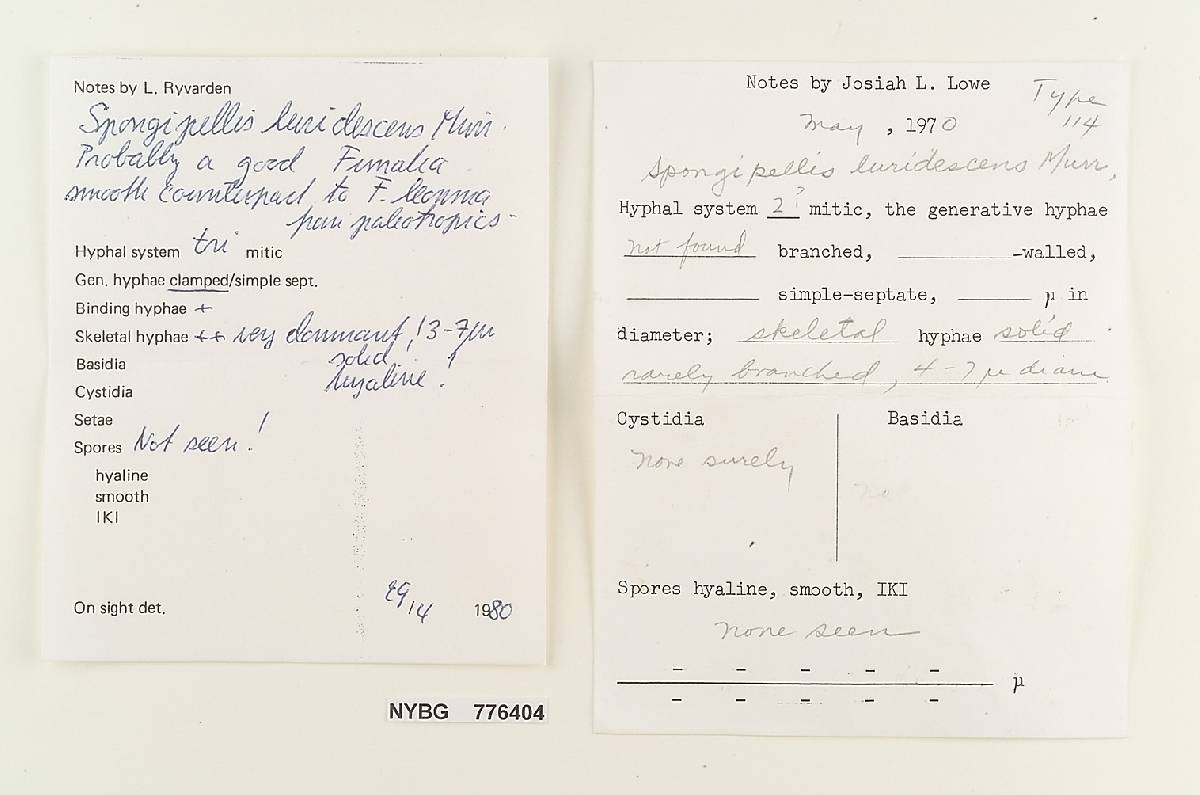 Notes by L. Ryvarden
Spongipellis luridescens Murr.
Probably a good Fomalia
smooth counterpart to F.
paleotropics.
Hyphal system tri mitic
Gen. hyphae clamped/simple sept.
Binding hyphae +
Skeletal hyphae ++ very dominant! 3-7µm
solid!
Basidia
hyaline!
Cystidia
Setae
Spores Not seen!
hyaline
smooth
IKI
On sight det. 29/4 1980
NYBG 776404
Notes by Josiah L. Lowe
Type
114
May, 1970
Spongipellis luridescens Murr.
Hyphal system 2? mitic, the generative hyphae
not found branched, -walled,
simple-septate, µ in
diameter; skeletal hyphae solid
rarely branched, 4-7 µ diam
Cystidia
None surely
Basidia
No
Spores hyaline, smooth, IKI
none seen
- - - - -
µ
- - - - -